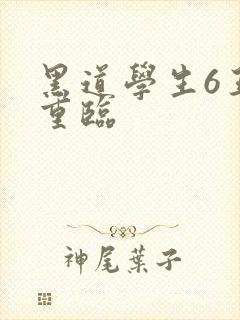 黑道學生6
重臨
神尾葉子